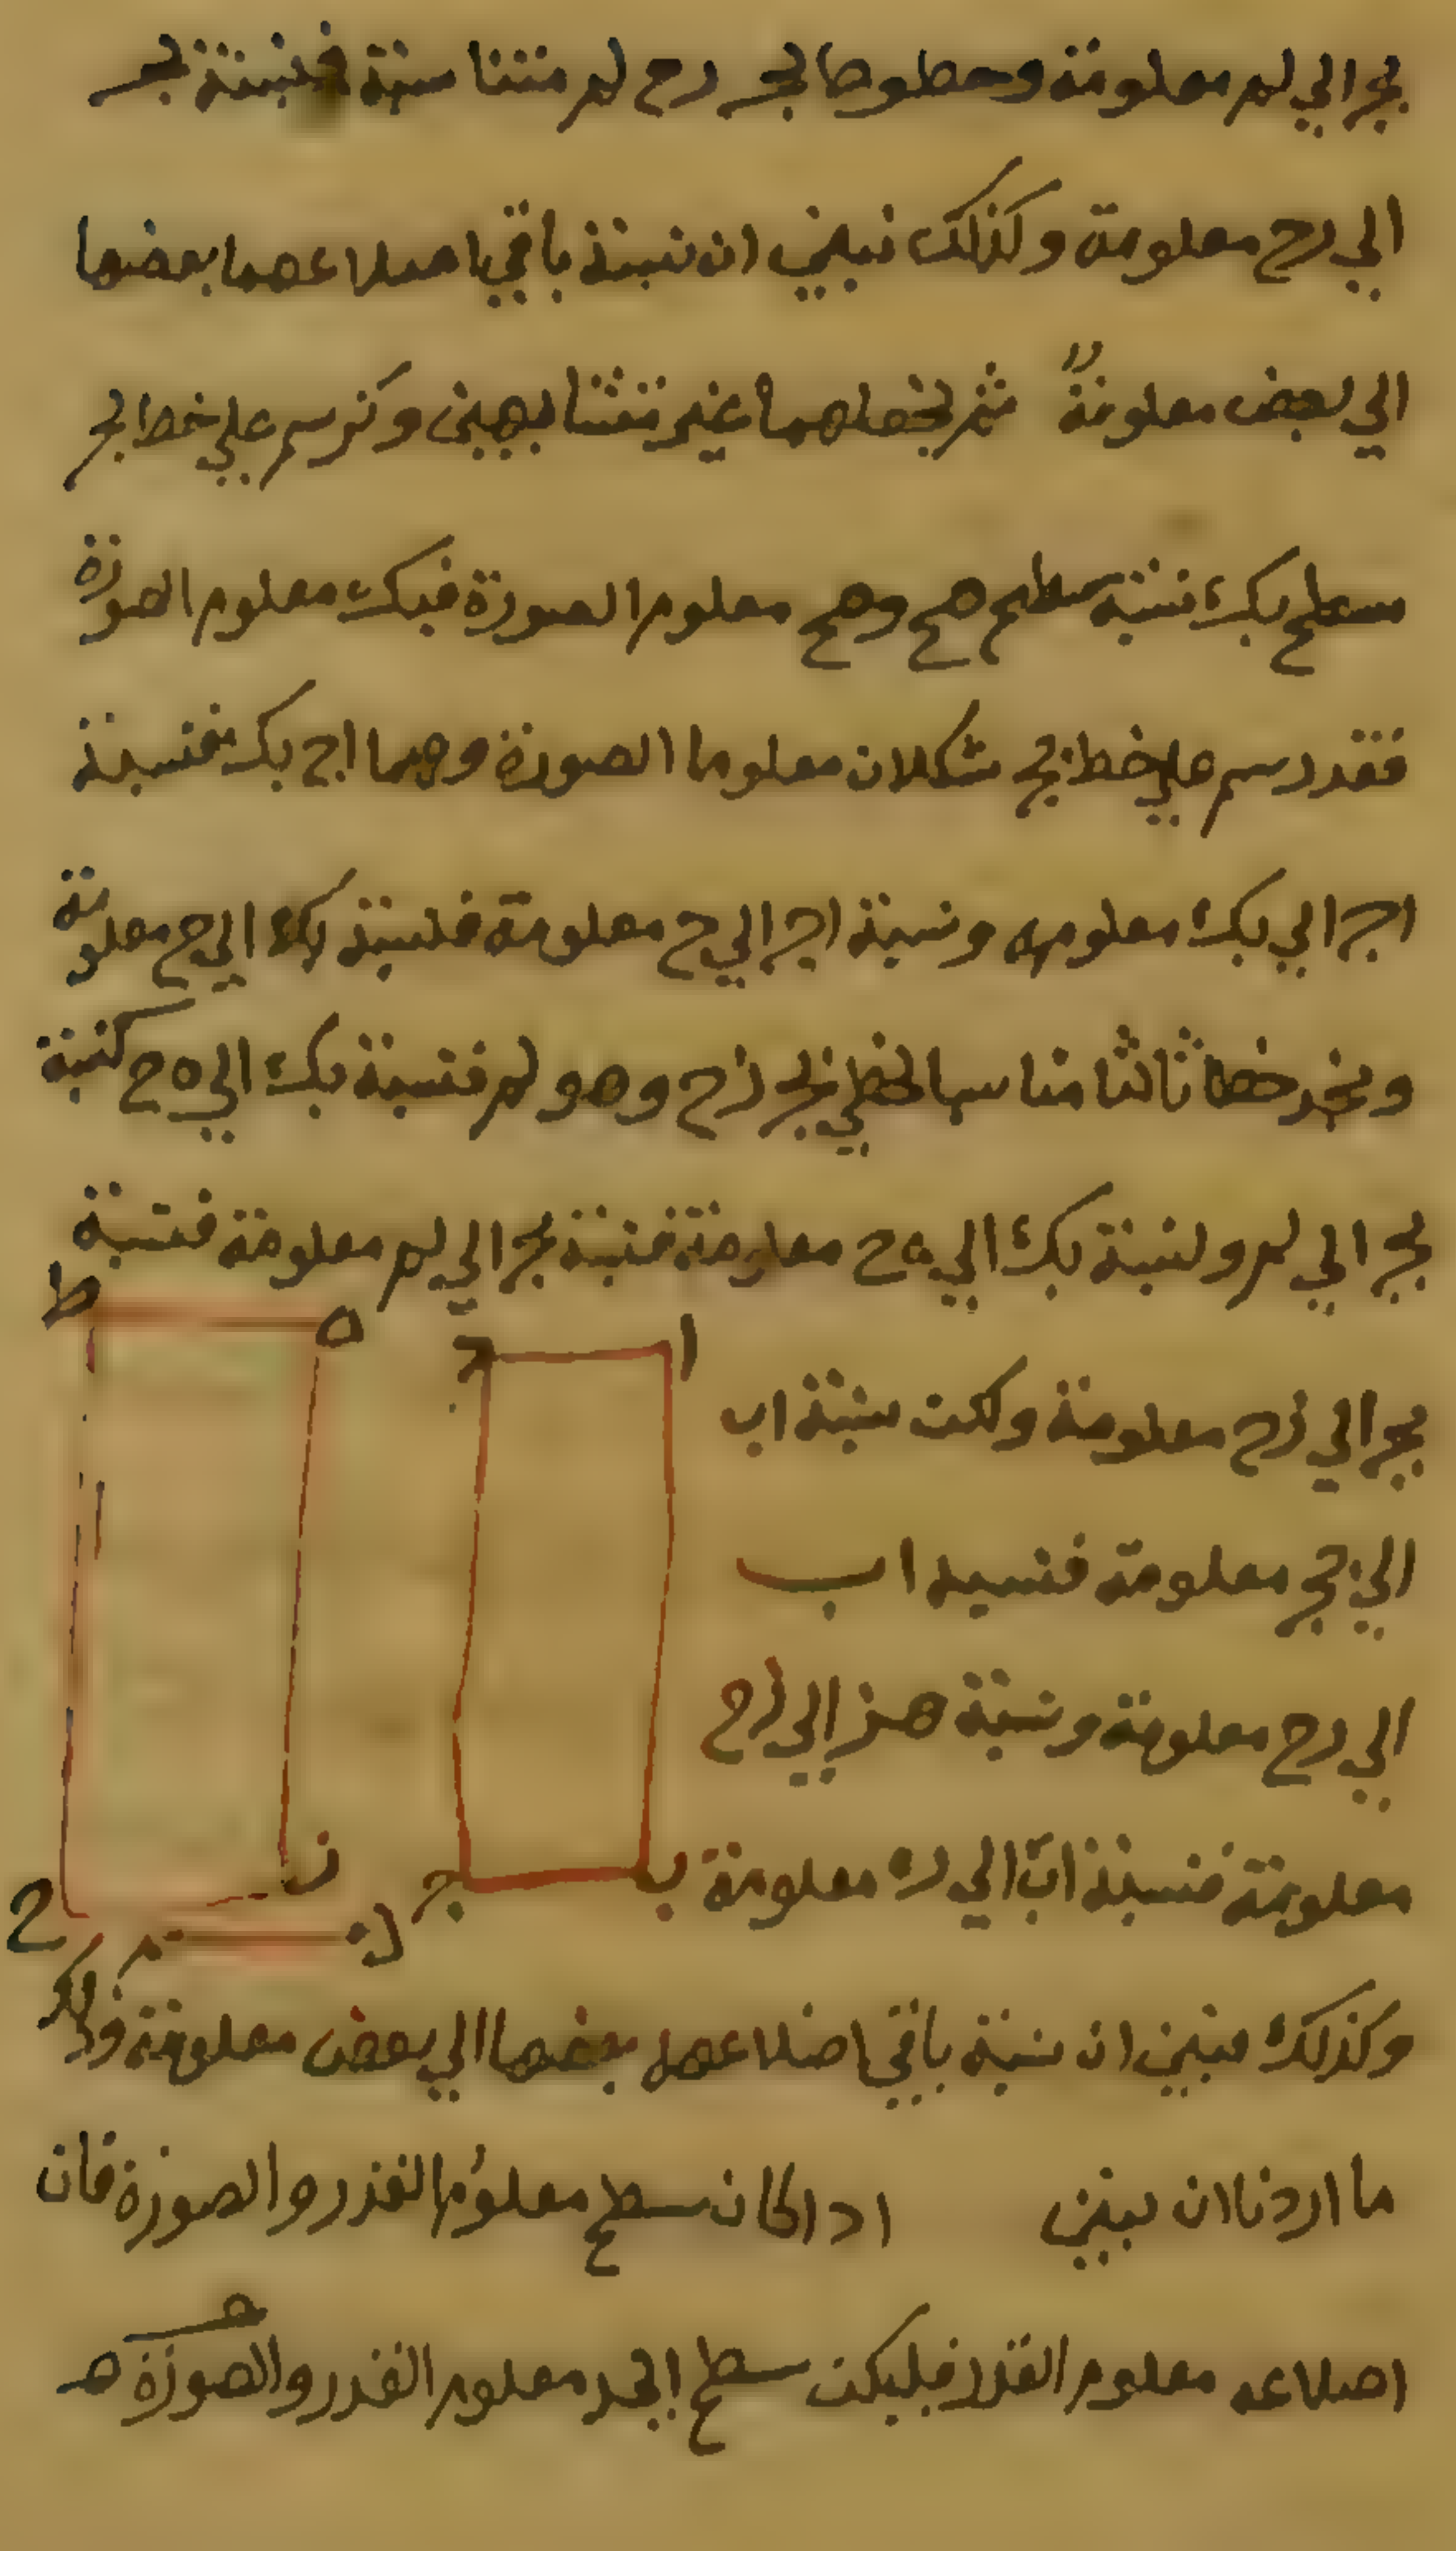 بج الي لم معلومة وخطوط بج زح لم متناسبة فنسبة بج
الي زح معلومة وكذلك نبين ان نسبة باقي اضلاعهما بعضها
الي بعض معلومةً ثم نجعلهما غير متشابهين ونرسم علي خط بج
سطح بك شبه سطح هح وهح معلوم الصورة فبك معلوم الصورة
فقد رسم علي خط بج شكلان معلوما الصورة وهما اج بك فنسبة
اج الي بك معلومه ونسبة اج الي ح معلومة فنسبة بك الي ح معلومة
ونجد خطا ثالثا مناسبا لخطي بج زح وهو لم فنسبة بك الي ه ح كنسبة
بج الي لم ونسبة بك الي ه ح معلومة فنسبة بج الي لم معلومة فنسبة
ط ه د ا
بج الي زح معلومة ولكن نسبة اب
الي بج معلومة فنسبة اب
الي زح معلومة ونسبة هز الي زح
معلومة فنسبة اب الي ه معلومة
ح ز ج ب
م ل
وكذلك نبين ان نسبة باقي اضلاعهما بعضها الي بعض معلومة وذلك
ما اردنا ان نبين اذا كان سطح معلوم القدر والصورة فان
اضلاعه معلوم القدر فليكن سطح ابجد معلوم القدر والصورة